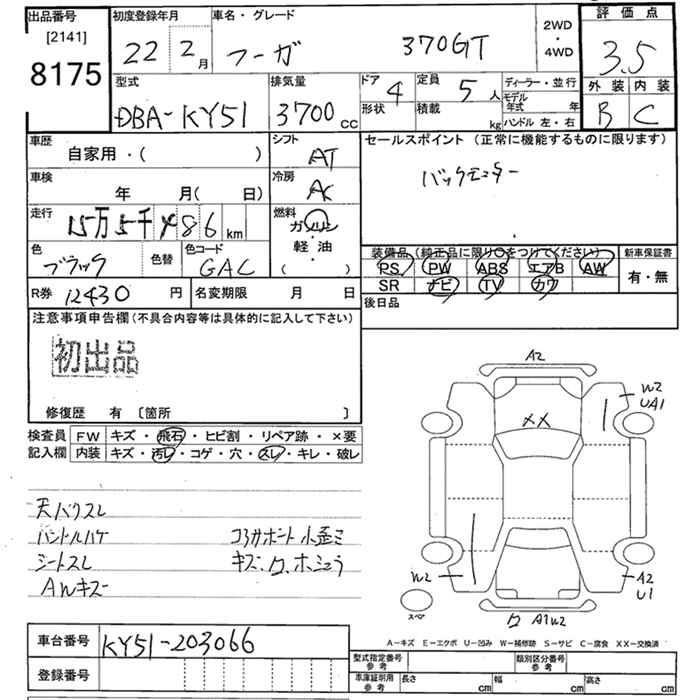 出品番号 初度登録年月 車名・グレード 2WD・4WD 評価点
[2141] 8175 22 2月 フーガ 370GT 3.5
型式 排気量 ドア 4 定員 5人 ディーラー・並行 外装 内装
DBA-KY51 3700cc 形状 積載 kg モデル年式 年 ハンドル 左・右 B C
車歴 自家用・( ) シフト AT セールスポイント (正常に機能するものに限ります)
車検 年 月( 日) 冷房 AC バックモニター
走行 15万5千486km 燃料 ガソリン 軽・油 ( )
色 ブラック 色替 色コード GAC 装備品(純正品に限り○をつけてください) 新車保証書
PS PW ABS エアB AW 有・無
SR ナビ TV カワ
R券 12430円 名変期限 月 日 後日品
注意事項申告欄(不具合内容等は具体的に記入して下さい)
初出品
修復歴 有 〔箇所 〕
検査員 FW キズ・飛石・ヒビ割・リペア跡・×要
記入欄 内装 キズ・汚レ・コゲ・穴・スレ・キレ・破レ
天バクスレ
ハンドルハゲ コアサポート小歪ミ
シートスレ
AWキズー
A2
W2
UA1
XX
W2
A2
U1
スペア
A1W2
A-キズ E-エクボ U-凹み W-補修跡 S-サビ C-腐食 XX-交換済
車台番号 KY51-203066
登録番号
型式指定番号 参考 類別区分番号 参考
車庫証明用 参考 長さ cm 幅 cm 高さ cm